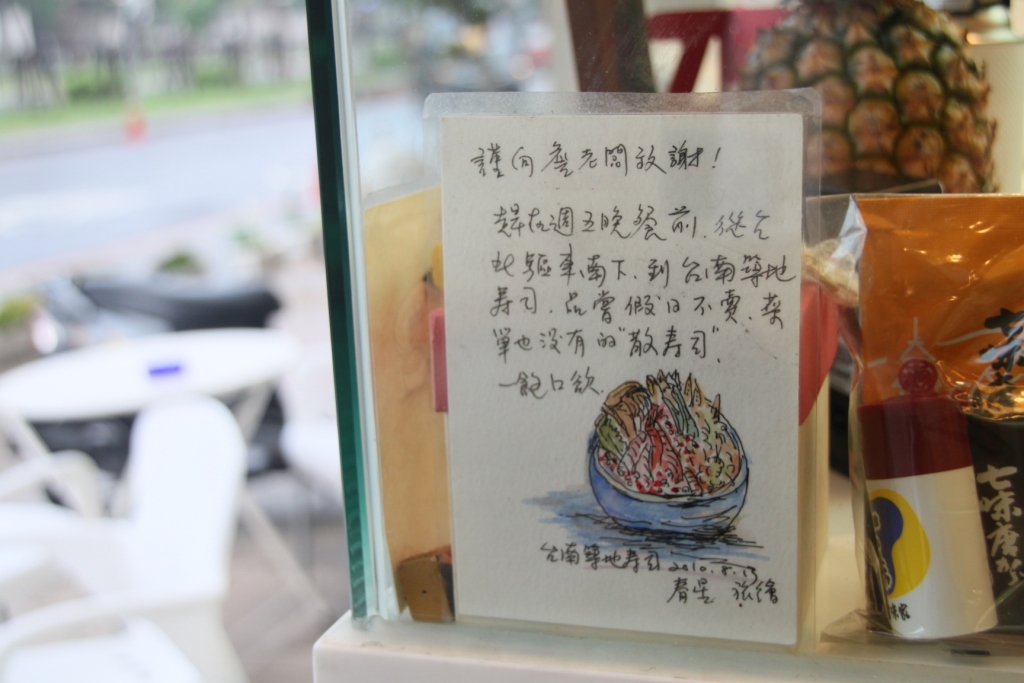 謹向詹老闆致謝!
趕在週五晚餐前、從台
北驅車南下、到台南築地
寿司、品嘗假日不賣、菜
單也没有的"散寿司"、
一飽口欲.
台南築地寿司 2010.8.13
春星 張繪
七味唐がらし